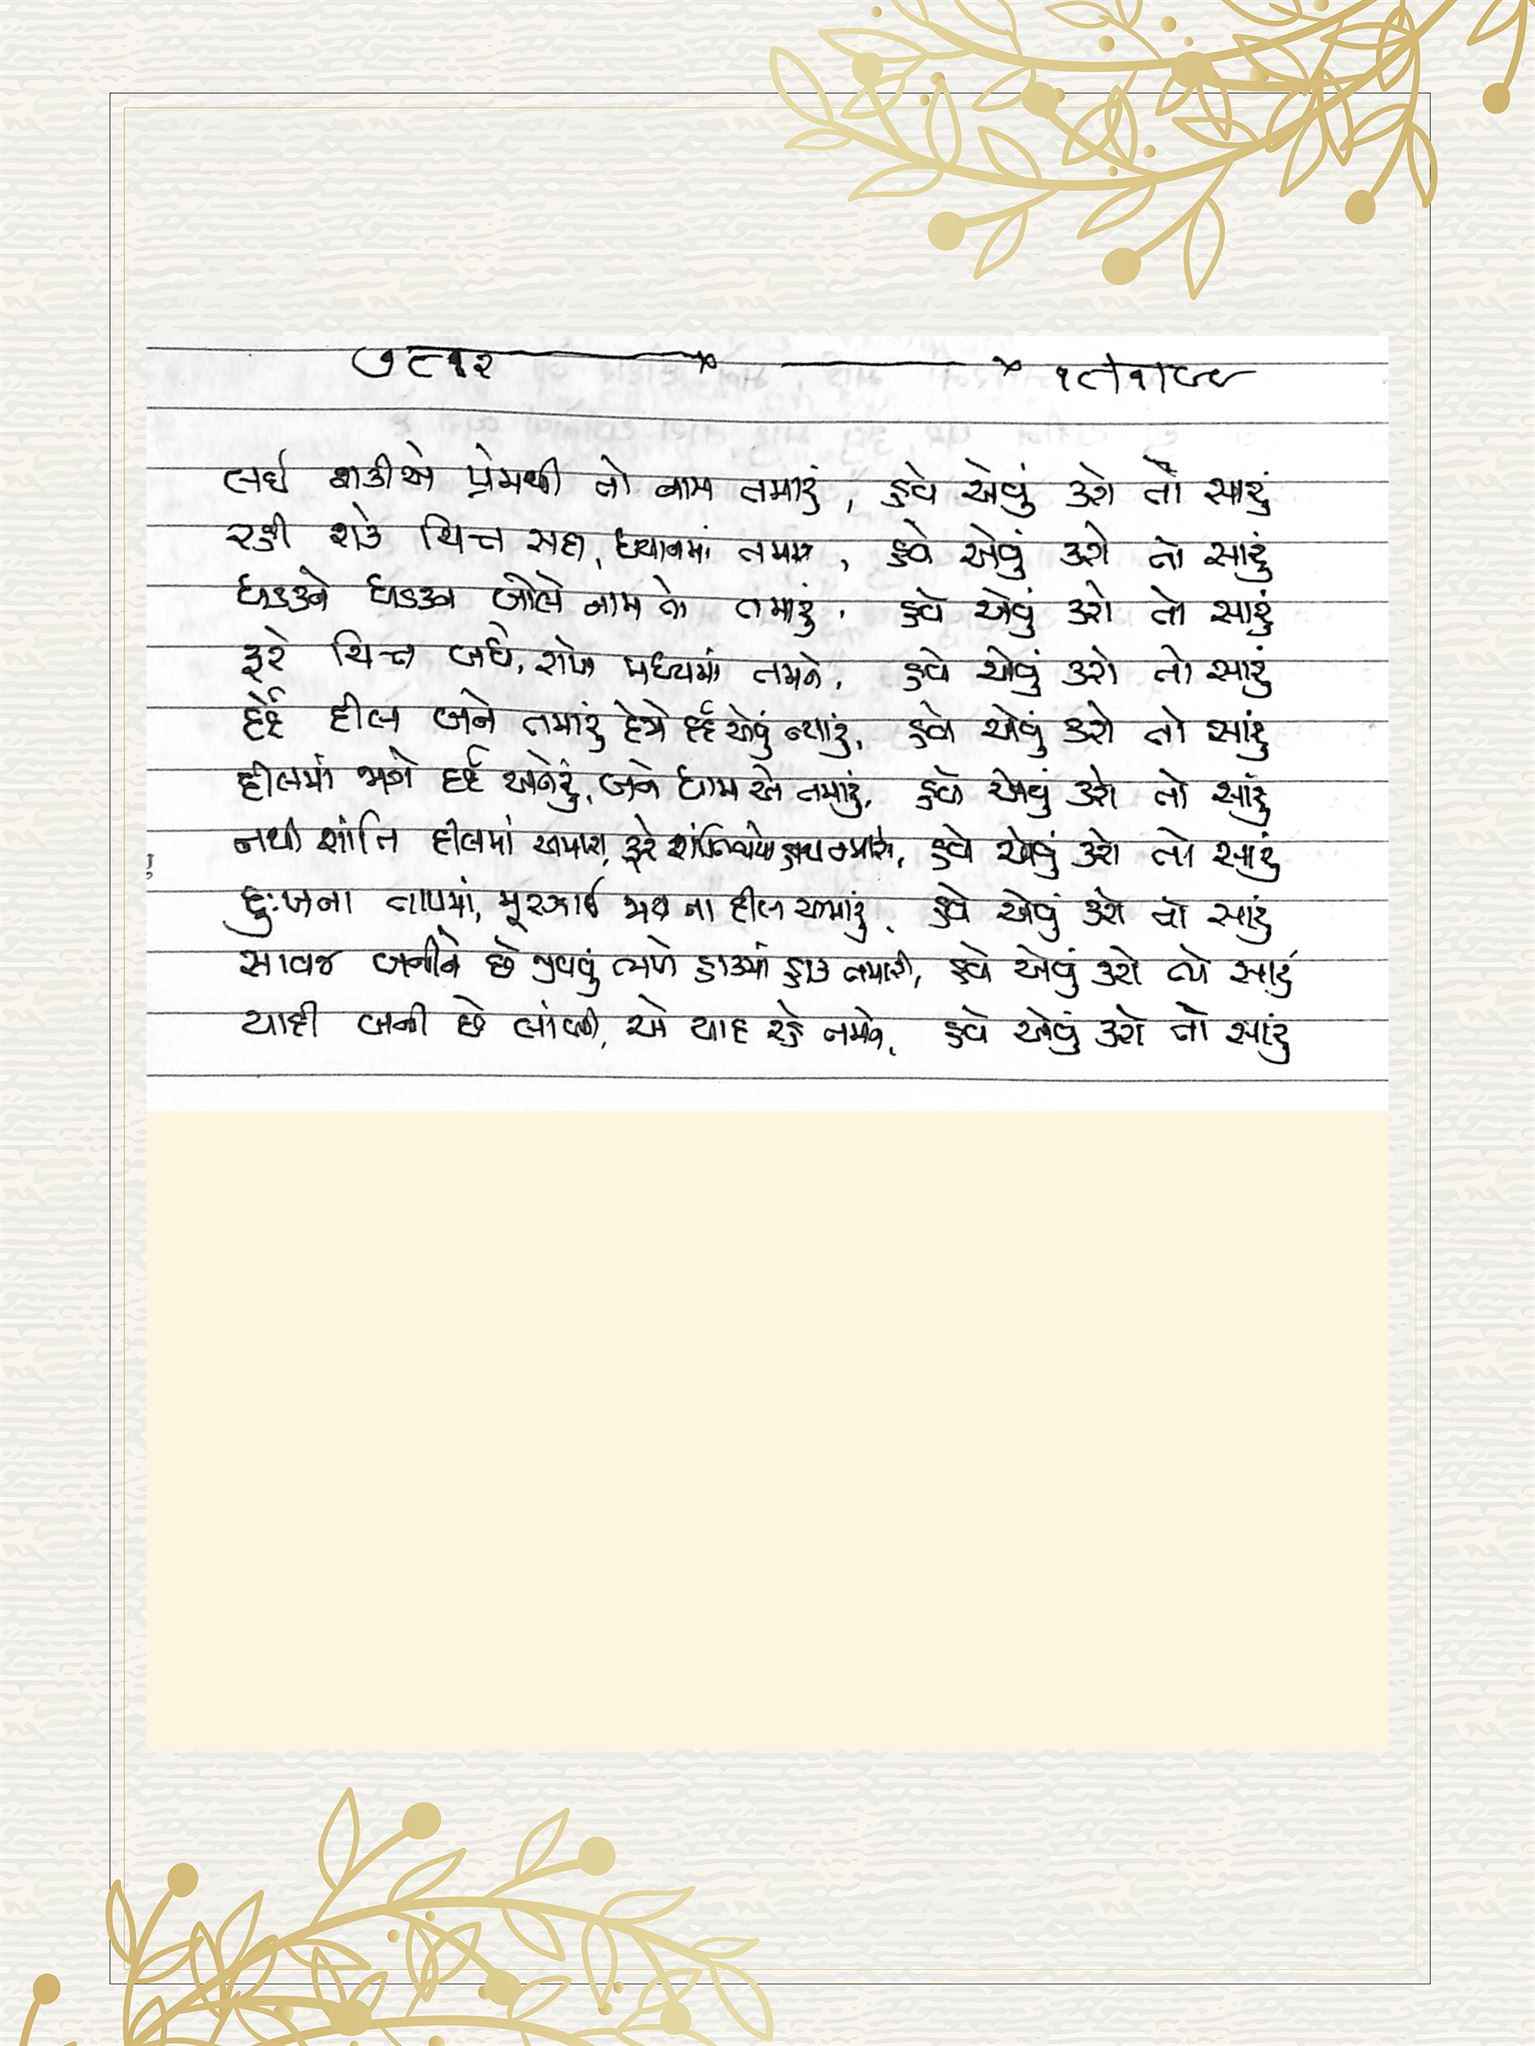 લઈ શકીએ પ્રેમથી તો નામ તમારું, હવે એવું કરો તો સારું
રહી શકે ચિત્ત સદા, ધ્યાનમાં તમારા, હવે એવું કરો તો સારું
ધડકને ધડકન બોલે નામ તો તમારું, હવે એવું કરો તો સારું
ફરે ચિત્ત બધે, રાખે મધ્યમાં તમને, હવે એવું કરો તો સારું
દર્દે દીલ બને તમારું દેજે દર્દ એવું ન્યારું, હવે એવું કરો તો સારું
દીલમાં જાગે દર્દ અનેરું, બને ધામ એ તમારું, હવે એવું કરો તો સારું
નથી શાંતિ દીલમાં અમારા, ફરે શાંતિવાળો હાથ તમારો, હવે એવું કરો તો સારું
દુઃખના તાપમાં, મૂરઝાઈ જાય ના દીલ અમારું, હવે એવું કરો તો સારું
સાવજ બનીને છે જીવવું હાકમાં હાક તમારી, હવે એવું કરો તો સારું
યાદી બની છે લાંબી, એ યાદ રહે તમને, હવે એવું કરો તો સારું